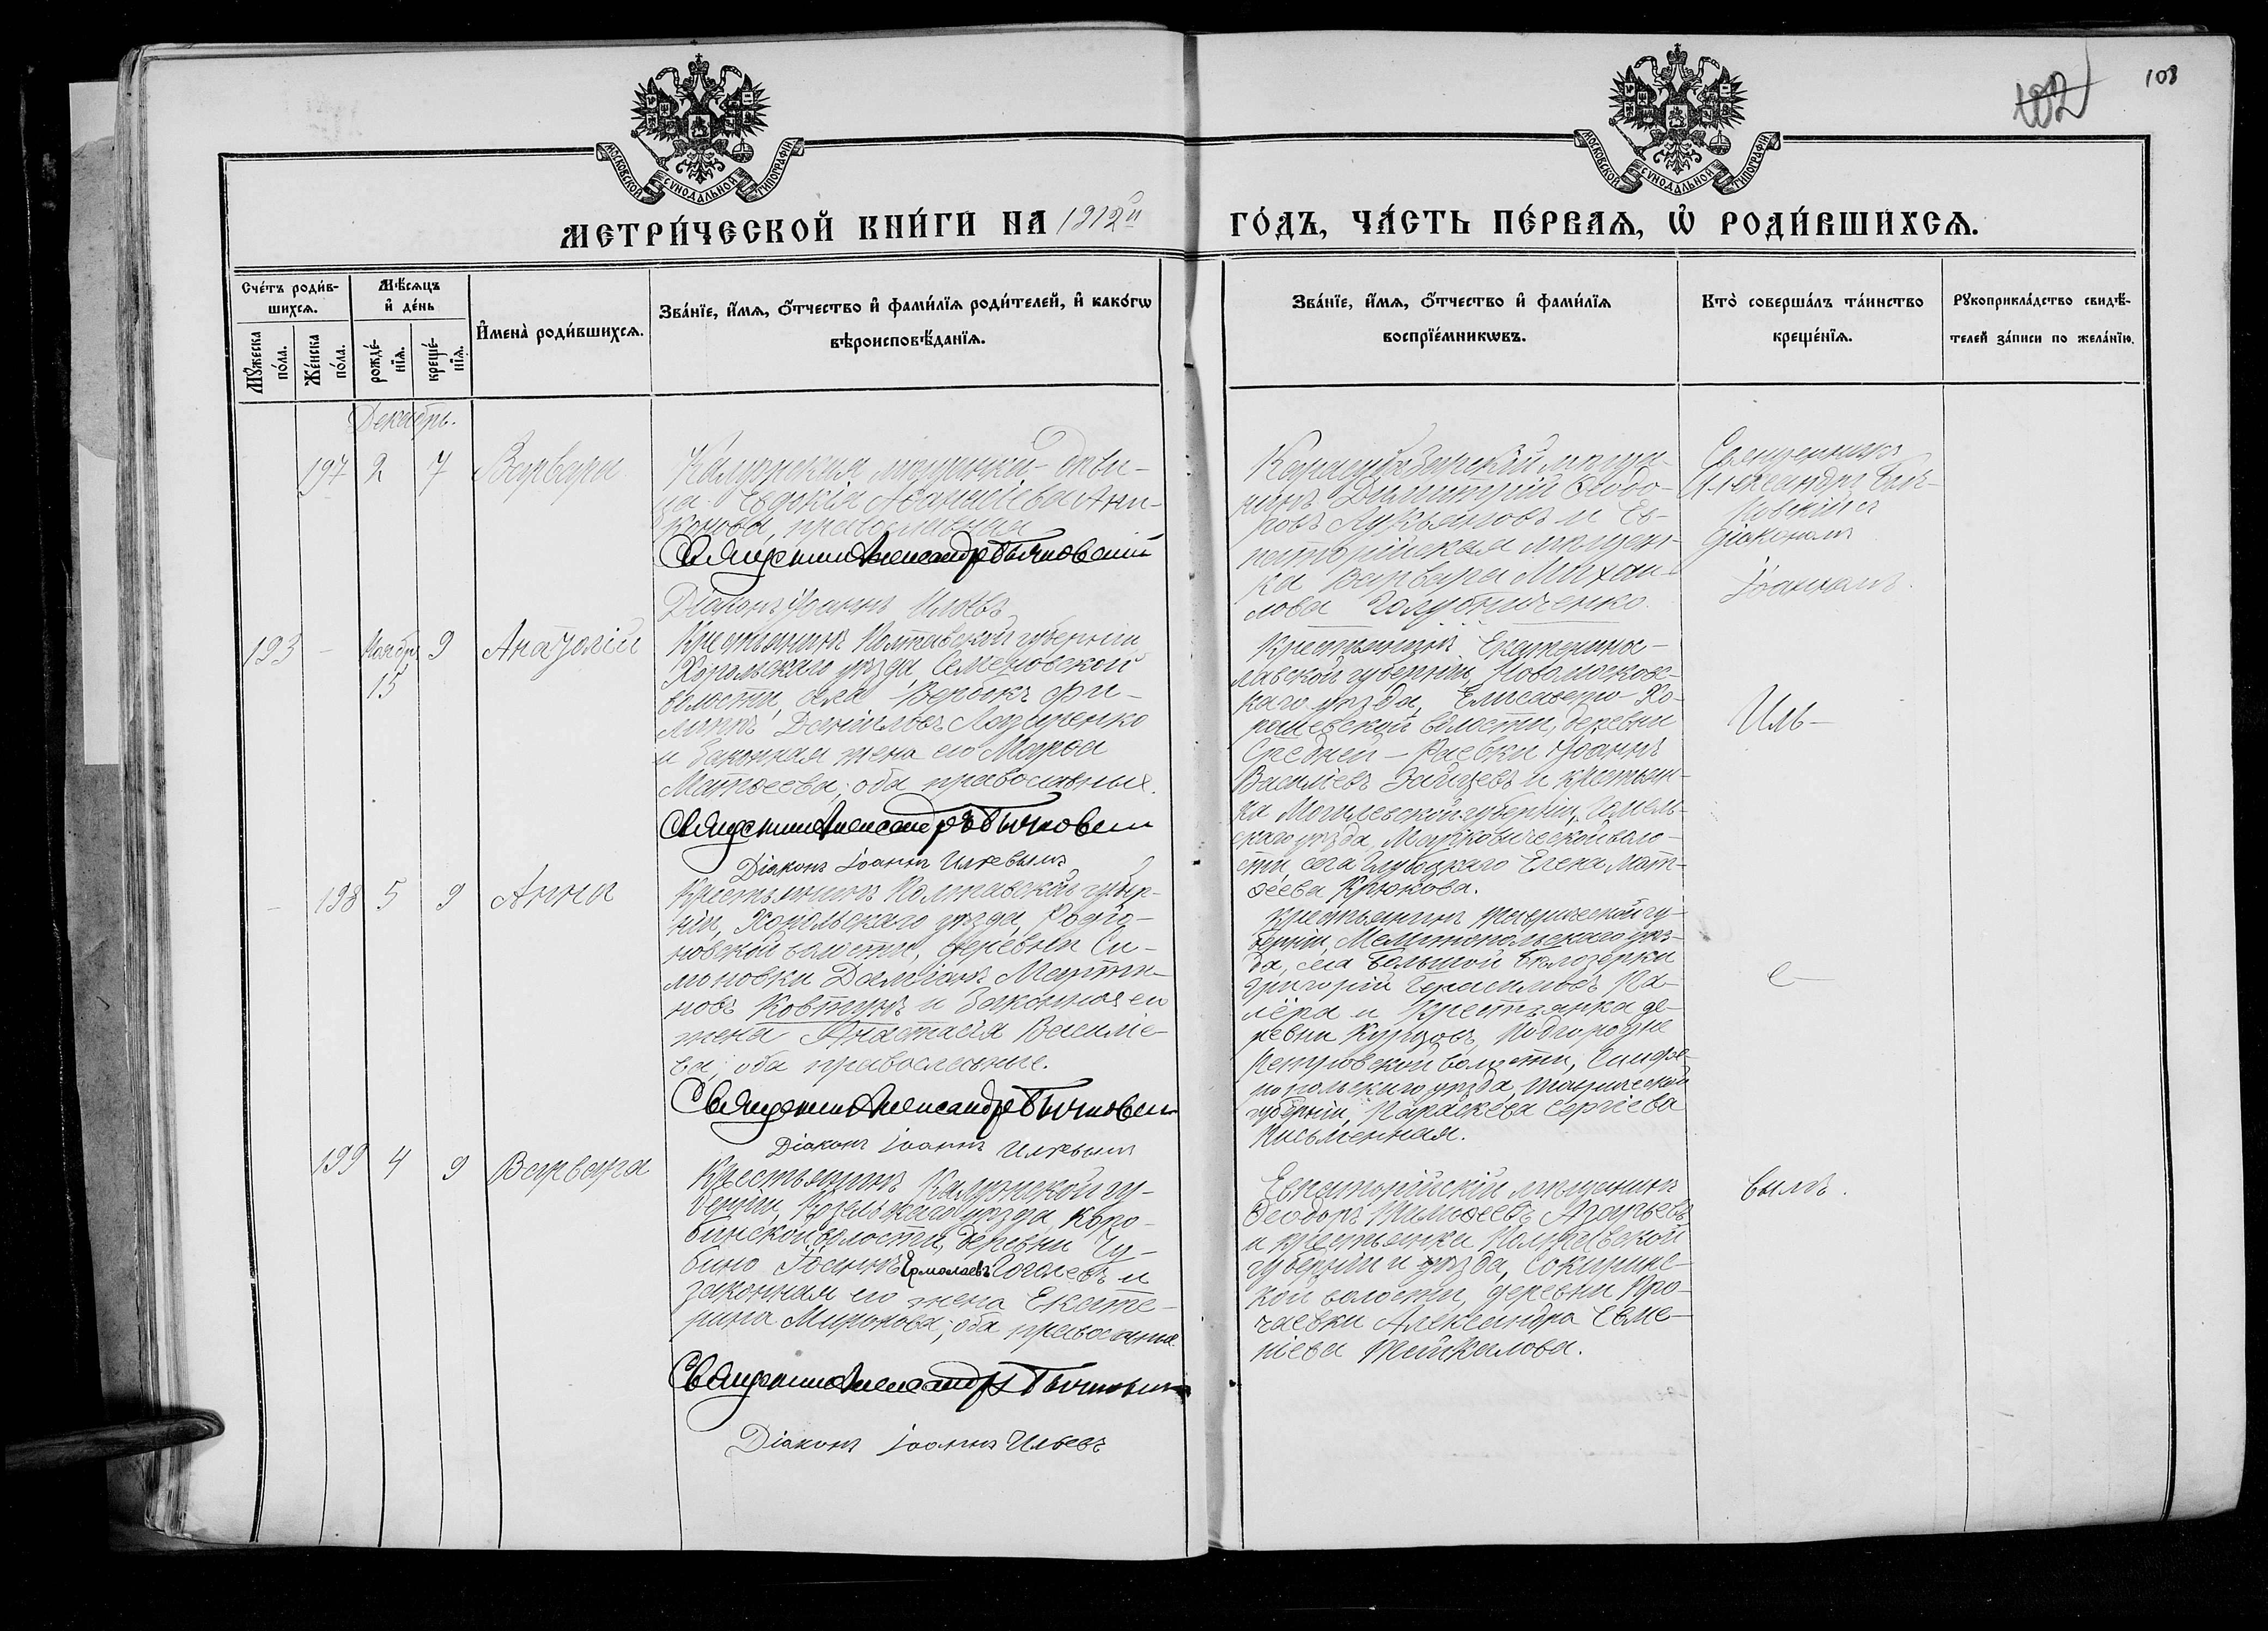 108
102
МОСКОВСКОЙ СѴНОДАЛЬНОЙ ТИПОГРАФІИ
МОСКОВСКОЙ СѴНОДАЛЬНОЙ ТИПОГРАФІИ
МЕТРИ́ЧЕСКОЙ КНИ́ГИ НА 1912й
ГО́ДЪ, ЧА́СТЬ ПЕ́РВАѦ, Ѡ҆ РОДИ́ВШИХСѦ.
Сче́тъ роди́в-
шихсѧ.
Мꙋ́жеска по́ла.
Же́нска по́ла.
Мѣ́сѧцъ
и҆ де́нь
рожде́-
нїѧ.
креще́-
нїѧ.
И҆мена̀ роди́вшихсѧ.
Зва́нїе, и҆́мѧ, ѻ҆́тчество и҆ фами́лїѧ роди́телей, и҆ како́гѡ
вѣроисповѣ́данїѧ.
Зва́нїе, и҆́мѧ, ѻ҆́тчество и҆ фами́лїѧ
воспрїе́мникѡвъ.
Кто̀ соверша́лъ та́инство
креще́нїѧ.
Рꙋкоприкла́дство свидѣ́-
телей за́писи по жела́нїю.
Декабрь.
197 2 7 Варвара
Калужская мѣщанка - дѣви-
ца Евдокія Аѳанасіева Ани-
конова, православная
Священникъ Александръ
Діаконъ Іоаннъ Ильевъ
Карасубазарскій мѣща-
нинъ Димитрій Ѳеодо-
ровъ Лукьяновъ и Ев-
паторійская мѣщан-
ка Варвара Михаи-
лова Голубниченко.
Священникъ
Александръ
съ
діакономъ
Іоанномъ
193 - Ноябр. 15 9 Анатолій
Крестьянинъ Полтавской губерніи
Хорольскаго уѣзда, Семеновской
волости, села Вербокъ Фи-
липпъ Даніиловъ Лазуренко
и законная жена его Марѳа
Матѳеева; оба православные.
Священникъ Александръ
Діаконъ Іоаннъ Ильевымъ
Крестьянинъ Екатерино-
славской губерніи, Новомосковс-
каго уѣзда, Елисавето-Хо-
рошевской волости, деревни
Средней - Раевки Іоаннъ
Василіевъ Зайцевъ и крестьян-
ка Могилевской губерніи, Гомель-
скаго уѣзда, Марковической воло-
сти, села Глубоцкаго Елена Мат-
ѳеева Крюкова.
Иль-
- 198 5 9 Анна
Крестьянинъ Полтавской губер-
ніи, Хорольскаго уѣзда, Родіо-
новской волости, деревни Си-
моновки Даміанъ Марти-
новъ Ковтунъ и законная его
жена Анастасія Василіе-
ва; оба православные.
Священникъ Александръ
Діаконъ Іоаннъ Ильевымъ
Крестьянинъ Таврической гу-
берніи, Мелитопольскаго уѣз-
да, села Большой Бѣлозерки
Григорій Герасимовъ Па-
лёра и крестьянка де-
ревни Курцовъ, Подгородне
Петровской волости, Симфе-
ропольскаго уѣзда, Таврической
губерніи, Параскева Сергіева
Письменная.
е-
199 4 9 Варвара
Крестьянинъ Калужской гу-
берніи, Козельскаго уѣзда, Коро-
бинской волости, деревни Чу-
бино Іоаннъ Ермолаевъ Гоголевъ и
законная его жена Екате-
рина Миронова; оба православные.
Священникъ Александръ
Діаконъ Іоаннъ Ильевъ
Евпаторійскій мѣщанинъ
Ѳеодоръ Тимоѳеевъ
и крестьянка Полтавской
губерніи и уѣзда,
кой волости, деревни
Александра Евме-
ніева
вымъ.